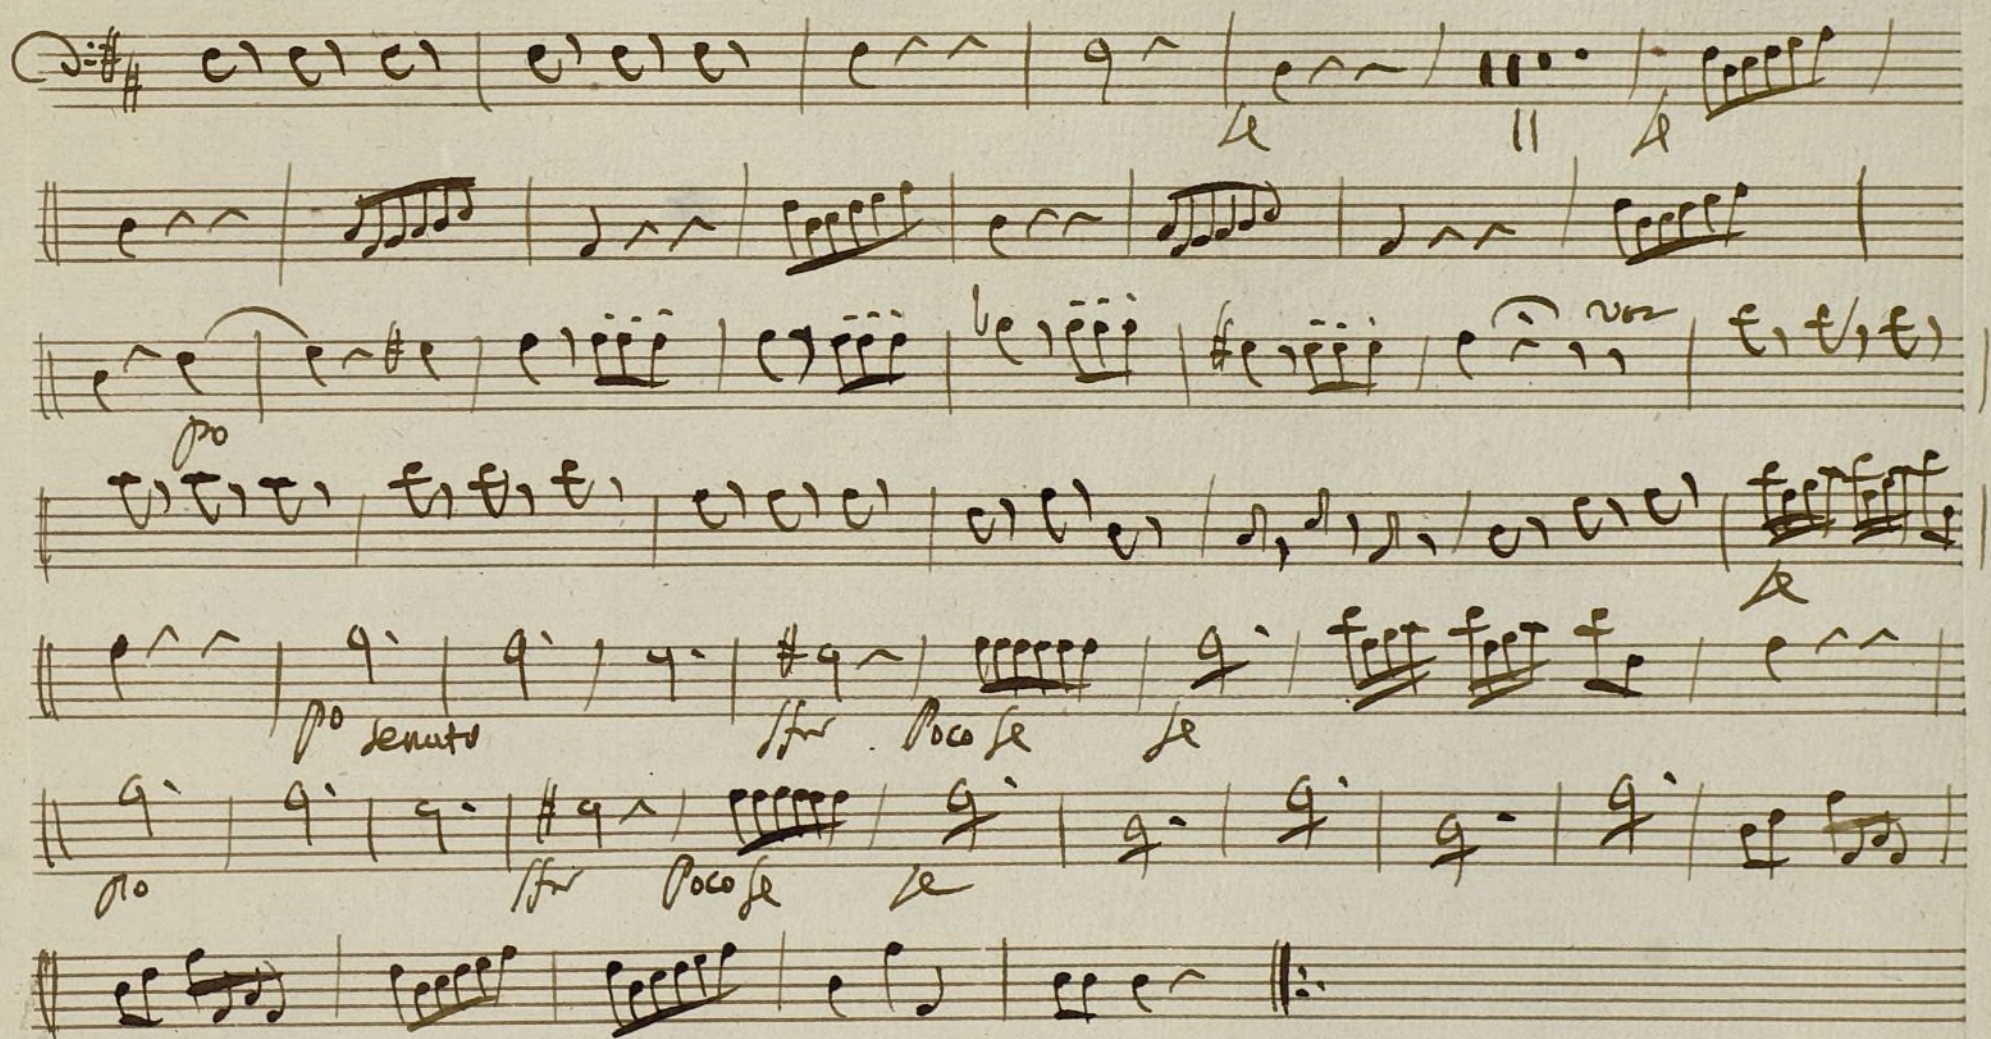 fe 11 fe
po
fe
po tenuto sfor Poco fe fe
po sfor Poco fe fe